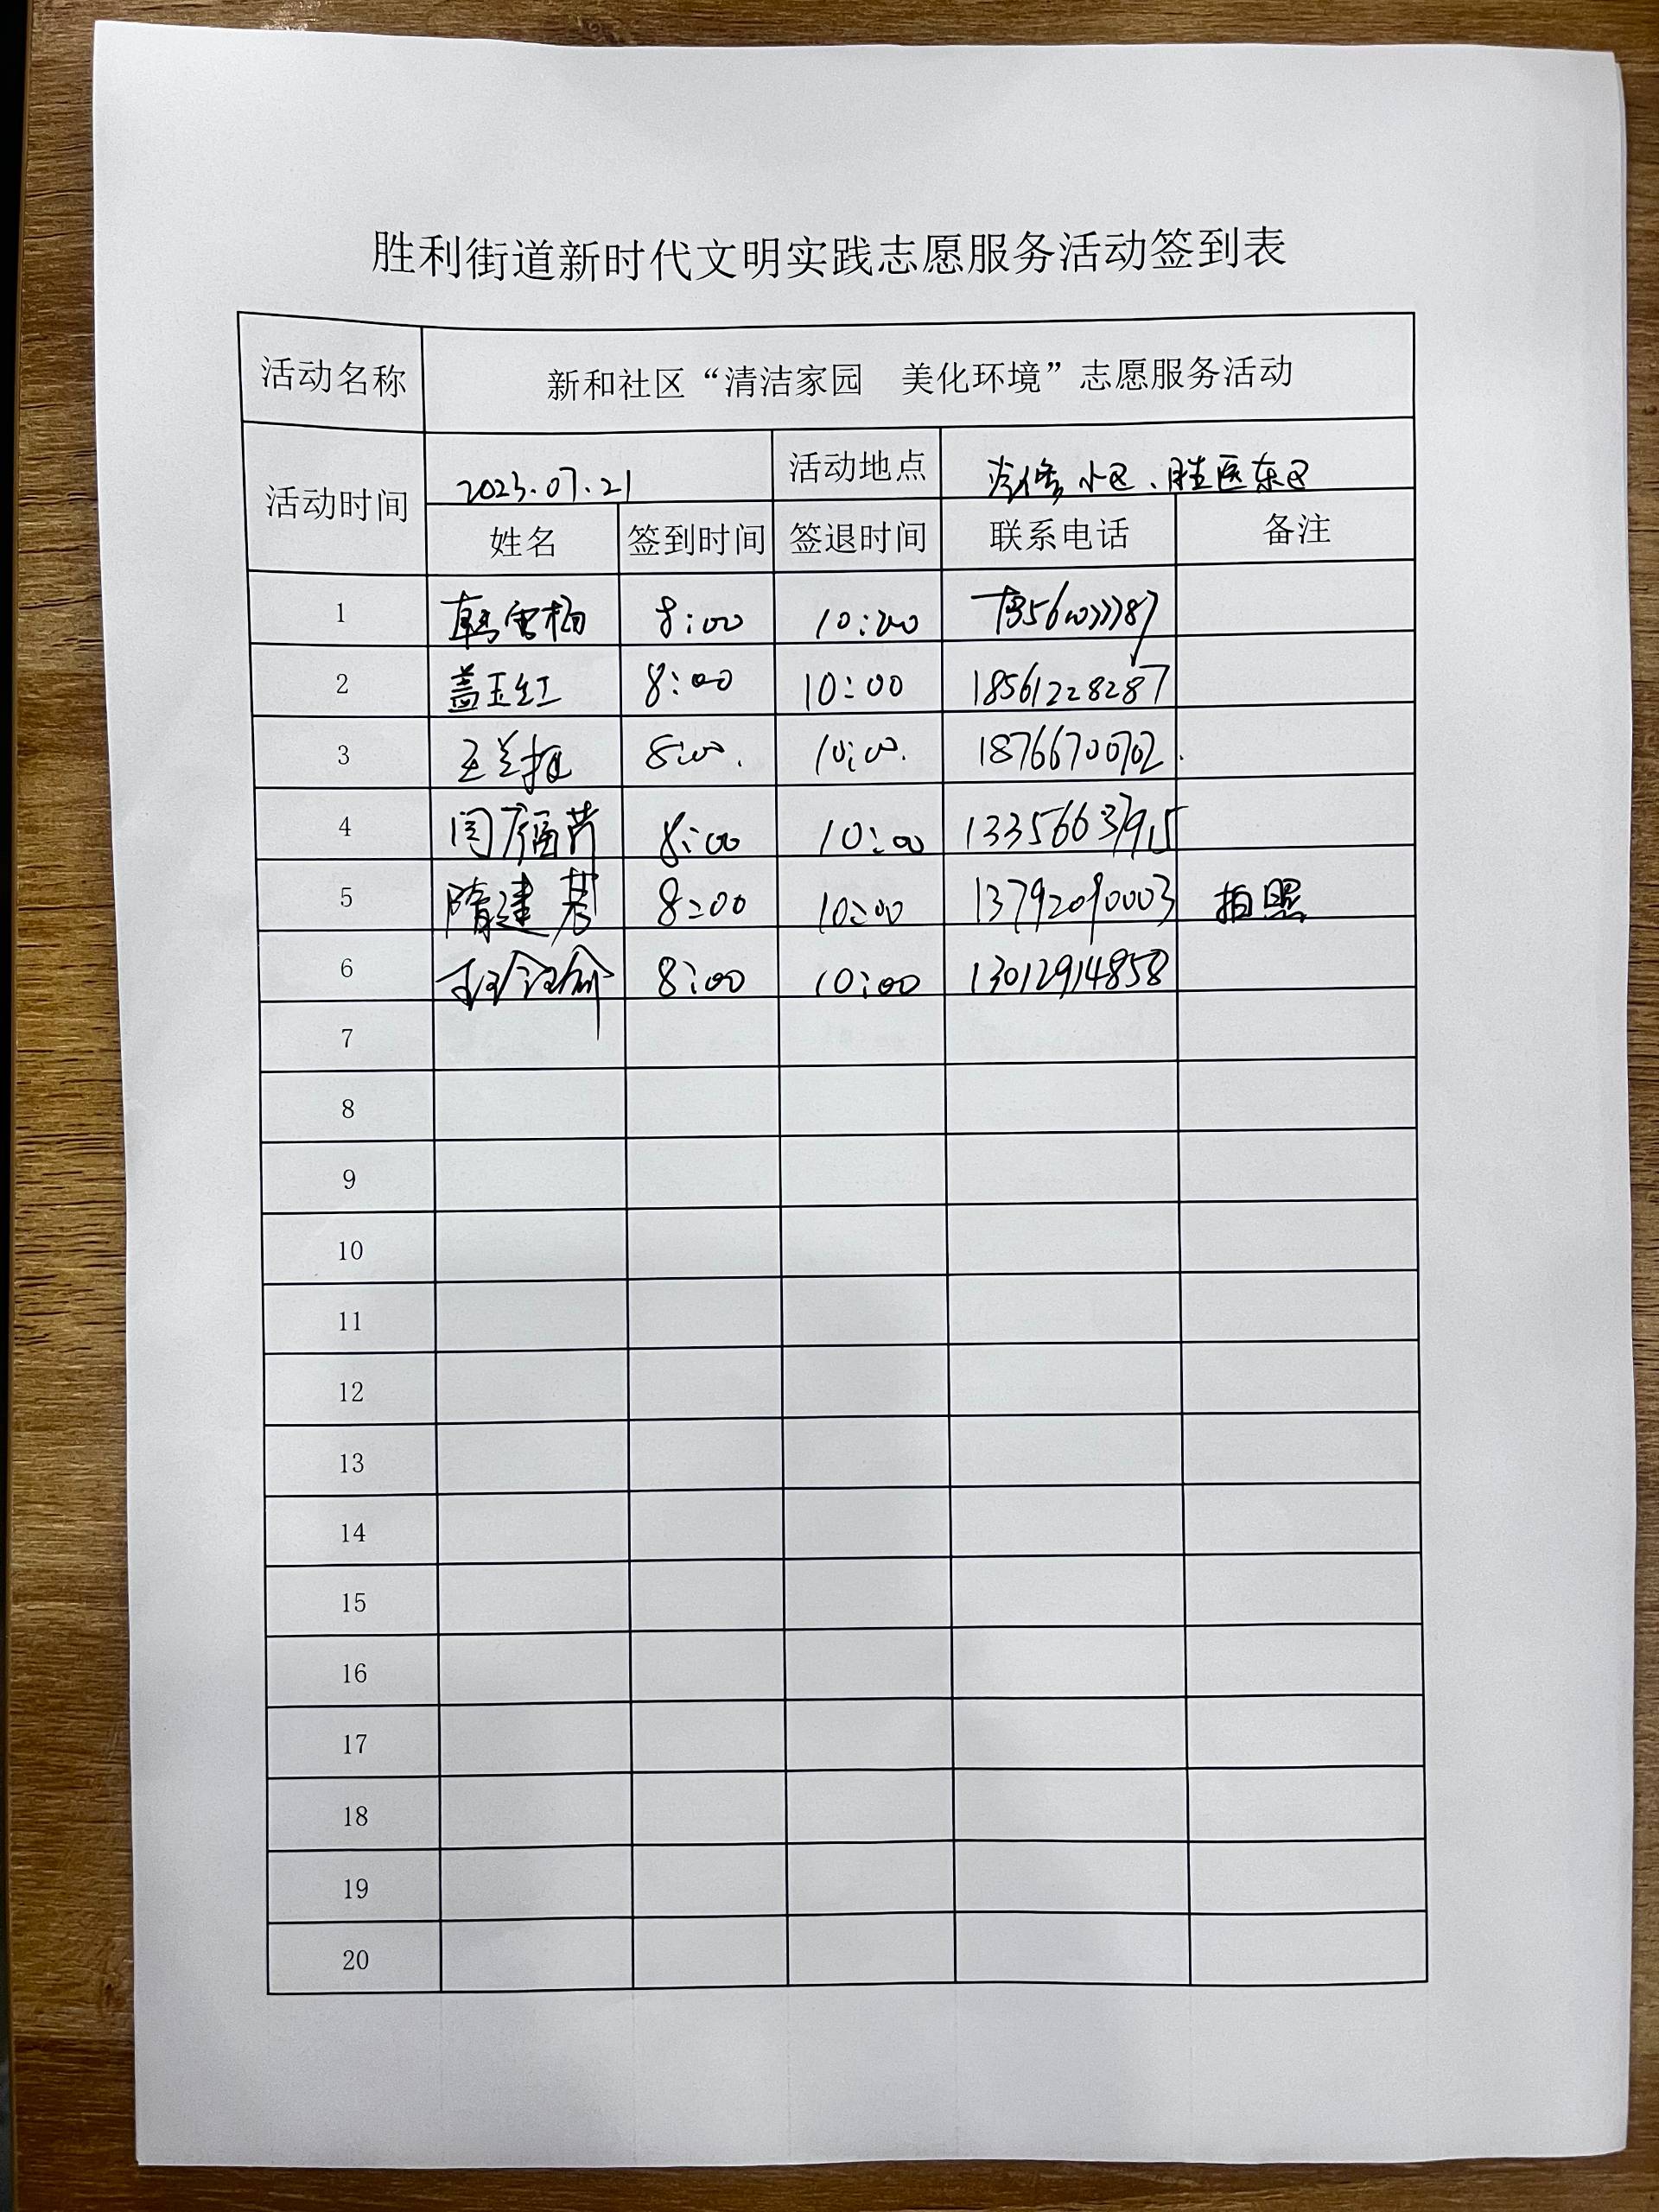 胜利街道新时代文明实践志愿服务活动签到表
活动名称 新和社区“清洁家园 美化环境”志愿服务活动
活动时间 2023.07.21 活动地点 小区、胜医东区
姓名 签到时间 签退时间 联系电话 备注
1 韩雪梅 8:00 10:00
2 盖玉红 8:00 10:00 18561228287
3 8:00. 10:00. 18766700702.
4 闫福芹 8:00 10:00 13356637915
5 隋建基 8:00 10:00 13792090003 拍照
6 8:00 10:00 13012914858
7
8
9
10
11
12
13
14
15
16
17
18
19
20